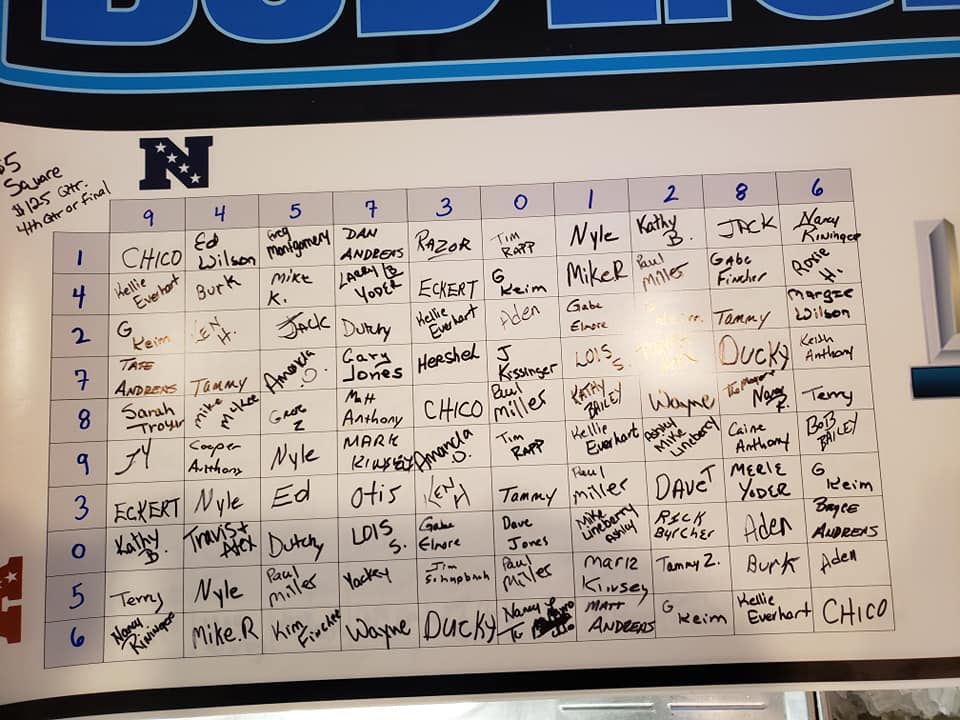 BUD LIGHT
$5
Square
$125 Qtr.
4th Qtr or Final
N
9 4 5 7 3 0 1 2 8 6
1 CHICO Ed Wilson Greg Montgomery DAN ANDREWS RAZOR Tim RAPP Nyle Kathy B. JACK Nancy Kininger
4 Kellie Everhart Burk Mike K. LARRY YODER ECKERT G Keim Mike.R Paul Miller Gabe Fincher Roxie H.
2 G Keim KEN H. JACK Dutchy Kellie Everhart Aden Gabe Elmore Tammy Margee Wilson
7 TATE ANDREWS Tammy Amanda O. Gary Jones Hershel J Kissinger LOIS S. Ducky Keith Anthony
8 Sarah Troyer Mike McKee Greg Z Matt Anthony CHICO Paul Miller KATHY BAILEY Wayne Nancy R. Terry
9 JY Cooper Anthony Nyle MARK Kinsey Amanda O. Tim RAPP Kellie Everhart Ashley Mike Lineberry Caine Anthony BOB BAILEY
3 ECKERT Nyle Ed Otis KEN H Tammy Paul Miller DAVE T MERLE YODER G Keim
0 Kathy B. Travis + Alex Dutchy LOIS S. Gabe Elmore Dave Jones Mike Lineberry Ashley RICK Burcher Aden Bryce ANDREWS
5 Terry Nyle Paul Miller Yockey Jim Schnabach Paul Miller Mark Kinsey Tammy Z. Burk Aden
6 Nancy Kininger Mike.R Kim Fincher Wayne Ducky Nancy MATT ANDREWS G Keim Kellie Everhart CHICO